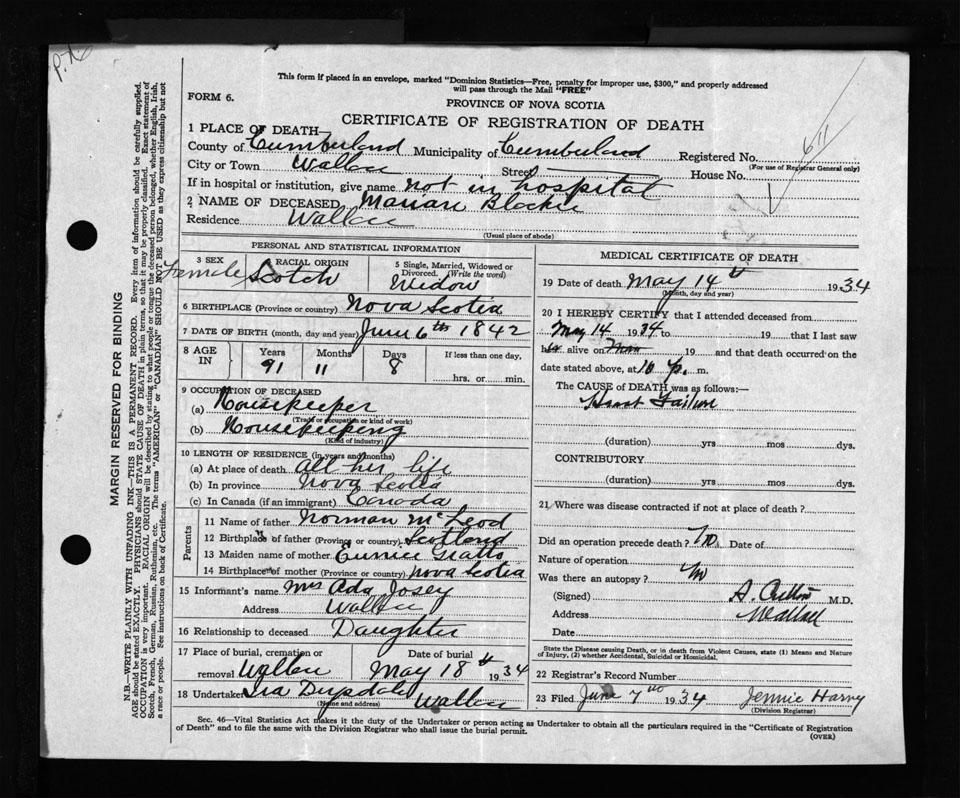 This form if placed in an envelope, marked "Dominion Statistics—Free, penalty for improper use, $300," and properly addressed
will pass through the Mail "FREE"
FORM 6.
PROVINCE OF NOVA SCOTIA
CERTIFICATE OF REGISTRATION OF DEATH
611
1 PLACE OF DEATH—
County of Cumberland Municipality of Cumberland Registered No.
(For use of Registrar General only)
City or Town Wallace Street House No.
If in hospital or institution, give name not in hospital
2 NAME OF DECEASED Marian Blackie
Residence Wallace
(Usual place of abode)
PERSONAL AND STATISTICAL INFORMATION
3 SEX Female
4 RACIAL ORIGIN Scotch
5 Single, Married, Widowed or Divorced. (Write the word) Widow
6 BIRTHPLACE (Province or country) Nova Scotia
7 DATE OF BIRTH (month, day and year) June 6th 1842
8 AGE IN Years 91 Months 11 Days 8 If less than one day, hrs. or min.
9 OCCUPATION OF DECEASED
(a) Housekeeper
(Trade or occupation or kind of work)
(b) Housekeeping
(Kind of industry)
10 LENGTH OF RESIDENCE (in years and months)
(a) At place of death all her life
(b) In province Nova Scotia
(c) In Canada (if an immigrant) Canada
Parents
11 Name of father Norman McLeod
12 Birthplace of father (Province or country) Scotland
13 Maiden name of mother Eunice Gratto
14 Birthplace of mother (Province or country) Nova Scotia
15 Informant's name Mrs Ada Josey
Address Wallace
16 Relationship to deceased Daughter
17 Place of burial, cremation or removal Wallace Date of burial May 18th 1934
18 Undertaker Ira Drysdale Wallace
(Name and address)
MEDICAL CERTIFICATE OF DEATH
19 Date of death May 14th 1934
(Month, day and year)
20 I HEREBY CERTIFY that I attended deceased from
May 14 1934 to 19 that I last saw
h alive on 19 and that death occurred on the
date stated above, at 10 p. m.
The CAUSE of DEATH was as follows:—
Heart Failure
(duration) yrs mos dys.
CONTRIBUTORY
(duration) yrs mos dys.
21 Where was disease contracted if not at place of death?
Did an operation precede death? No. Date of
Nature of operation
Was there an autopsy? No
(Signed) A. M.D.
Address Wallace
Date
State the Disease causing Death, or in death from Violent Causes, state (1) Means and Nature
of Injury, (2) whether Accidental, Suicidal or Homicidal.
22 Registrar's Record Number
23 Filed June 7th 1934 Jennie Harvy
(Division Registrar)
Sec. 46—Vital Statistics Act makes it the duty of the Undertaker or person acting as Undertaker to obtain all the particulars required in the "Certificate of Registration
of Death" and to file the same with the Division Registrar who shall issue the burial permit.
(OVER)
MARGIN RESERVED FOR BINDING
N.B.—WRITE PLAINLY WITH UNFADING INK—THIS IS A PERMANENT RECORD. Every item of information should be carefully supplied.
AGE should be stated EXACTLY. PHYSICIANS should STATE CAUSE OF DEATH in plain terms, so that it may be properly classified. Exact statement of
OCCUPATION is very important. RACIAL ORIGIN will be described by stating to what people or tongue the deceased person belonged, whether English, Irish,
Scotch, French, German, Russian, Ruthenian, etc. The terms "AMERICAN" or "CANADIAN" SHOULD NOT BE USED as they express citizenship but not
a race or people. See instructions on back of Certificate.